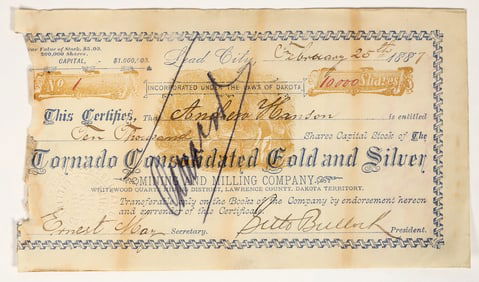 Par Value of Stock, $5.00.
200,000 Shares.
CAPITAL, $1,000,000.
Lead City, February 25th 1887
No 1
INCORPORATED UNDER THE LAWS OF DAKOTA
10000 Shares
This Certifies, That Andrew Hanson is entitled
Ten Thousand Shares Capital Stock of The
Tornado Consolidated Gold and Silver
MINING AND MILLING COMPANY,
WHITEWOOD QUARTZ DISTRICT, LAWRENCE COUNTY, DAKOTA TERRITORY.
Transferable only on the Books of the Company by endorsement hereon
and surrender of this Certificate.
Ernest May Secretary. Seth Bullock President.